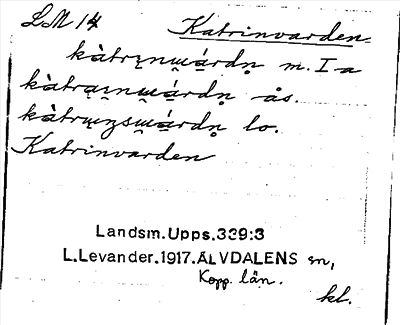 LM 14 Katrinvarden
kàtrɪnwárdn̥ m. I a
kàtrɑɪnwárdn̥ ås.
kàtrɯnswárdn̥ lo.
Katrinvarden
Landsm.Upps.339:3
L.Levander.1917.ÄLVDALENS sn,
Kopp. län.
kl.